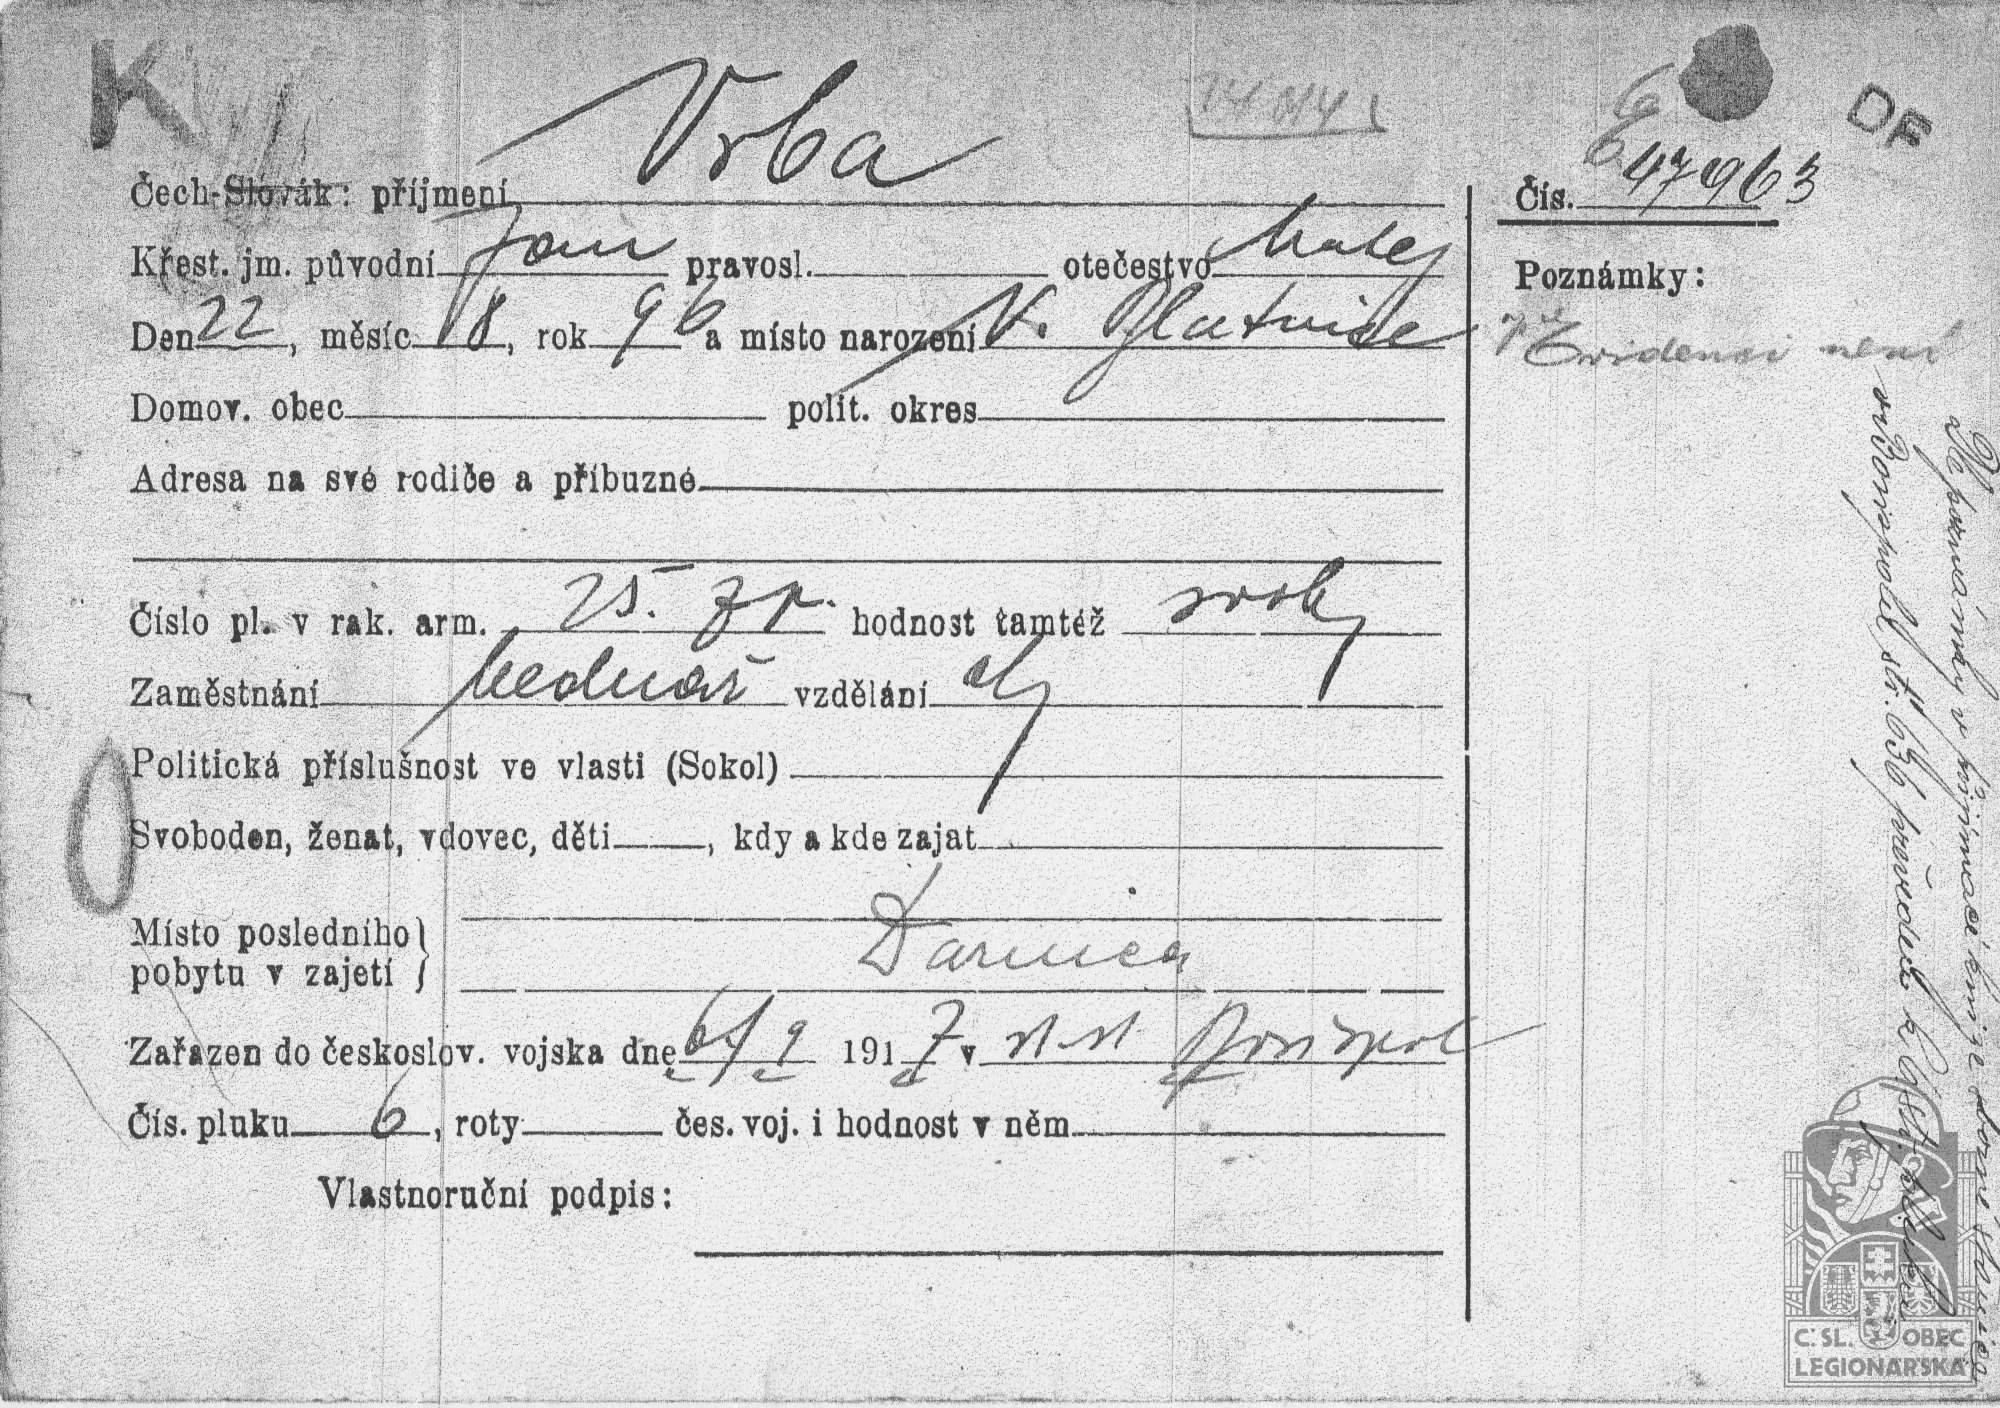 K
DF
Čech-Slovák: příjmení Vrba
Čís. 47963
Křest. jm. původní Jan pravosl. otečestvo Matej
Poznámky:
Den 22, měsíc 8, rok 96 a místo narození V. Blatnice
Evidenci není
Domov. obec polit. okres
Adresa na své rodiče a příbuzné
Číslo pl. v rak. arm. 25. hodnost tamtéž
Zaměstnání bednář vzdělání
Politická příslušnost ve vlasti (Sokol)
Svoboden, ženat, vdovec, děti , kdy a kde zajat
Místo posledního
pobytu v zajetí } Darnica
Zařazen do českoslov. vojska dne 6/9 1917 v st. st. Borispol
Čís. pluku 6, roty čes. voj. i hodnost v něm
Vlastnoruční podpis:
Dle poznámky v přijímací knize
v Borispoli str. 636
Č. SL. OBEC
LEGIONÁŘSKÁ